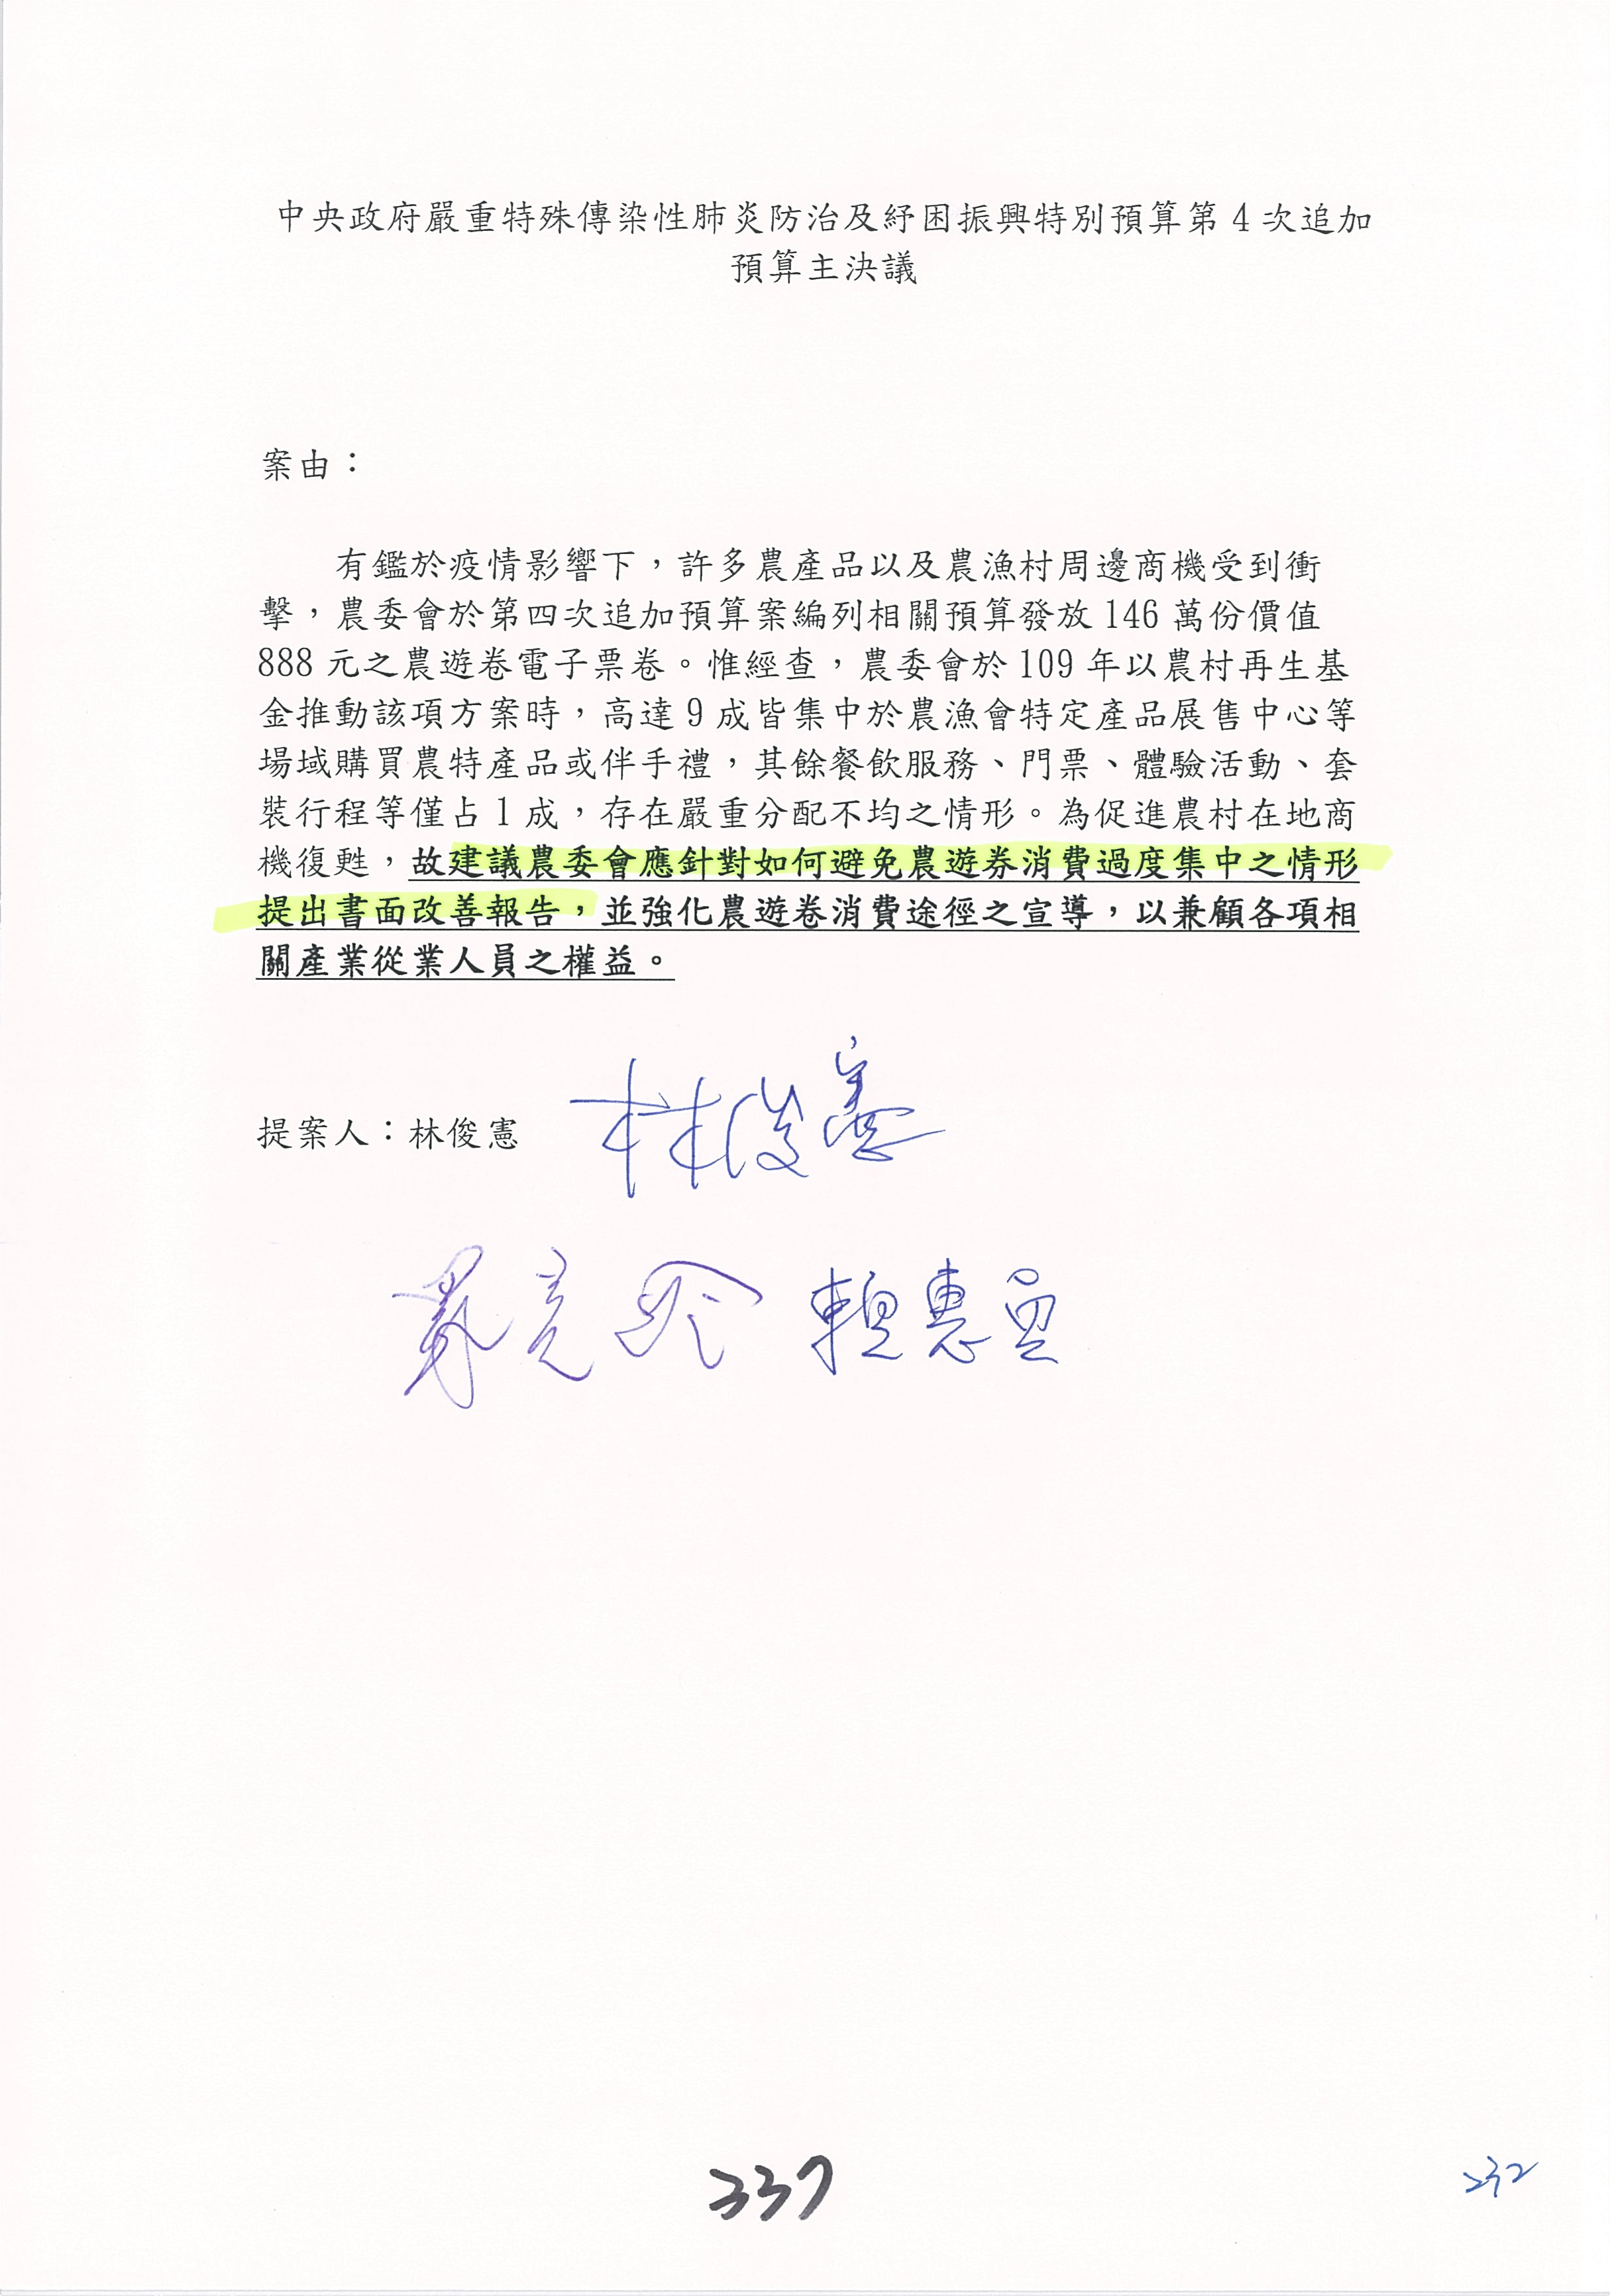 中央政府嚴重特殊傳染性肺炎防治及紓困振興特別預算第4次追加
預算主決議
案由：
有鑑於疫情影響下，許多農產品以及農漁村周邊商機受到衝
擊，農委會於第四次追加預算案編列相關預算發放146萬份價值
888元之農遊卷電子票卷。惟經查，農委會於109年以農村再生基
金推動該項方案時，高達9成皆集中於農漁會特定產品展售中心等
場域購買農特產品或伴手禮，其餘餐飲服務、門票、體驗活動、套
裝行程等僅占1成，存在嚴重分配不均之情形。為促進農村在地商
機復甦，故建議農委會應針對如何避免農遊券消費過度集中之情形
提出書面改善報告，並強化農遊卷消費途徑之宣導，以兼顧各項相
關產業從業人員之權益。
提案人：林俊憲 林俊憲
賴惠員
337
232